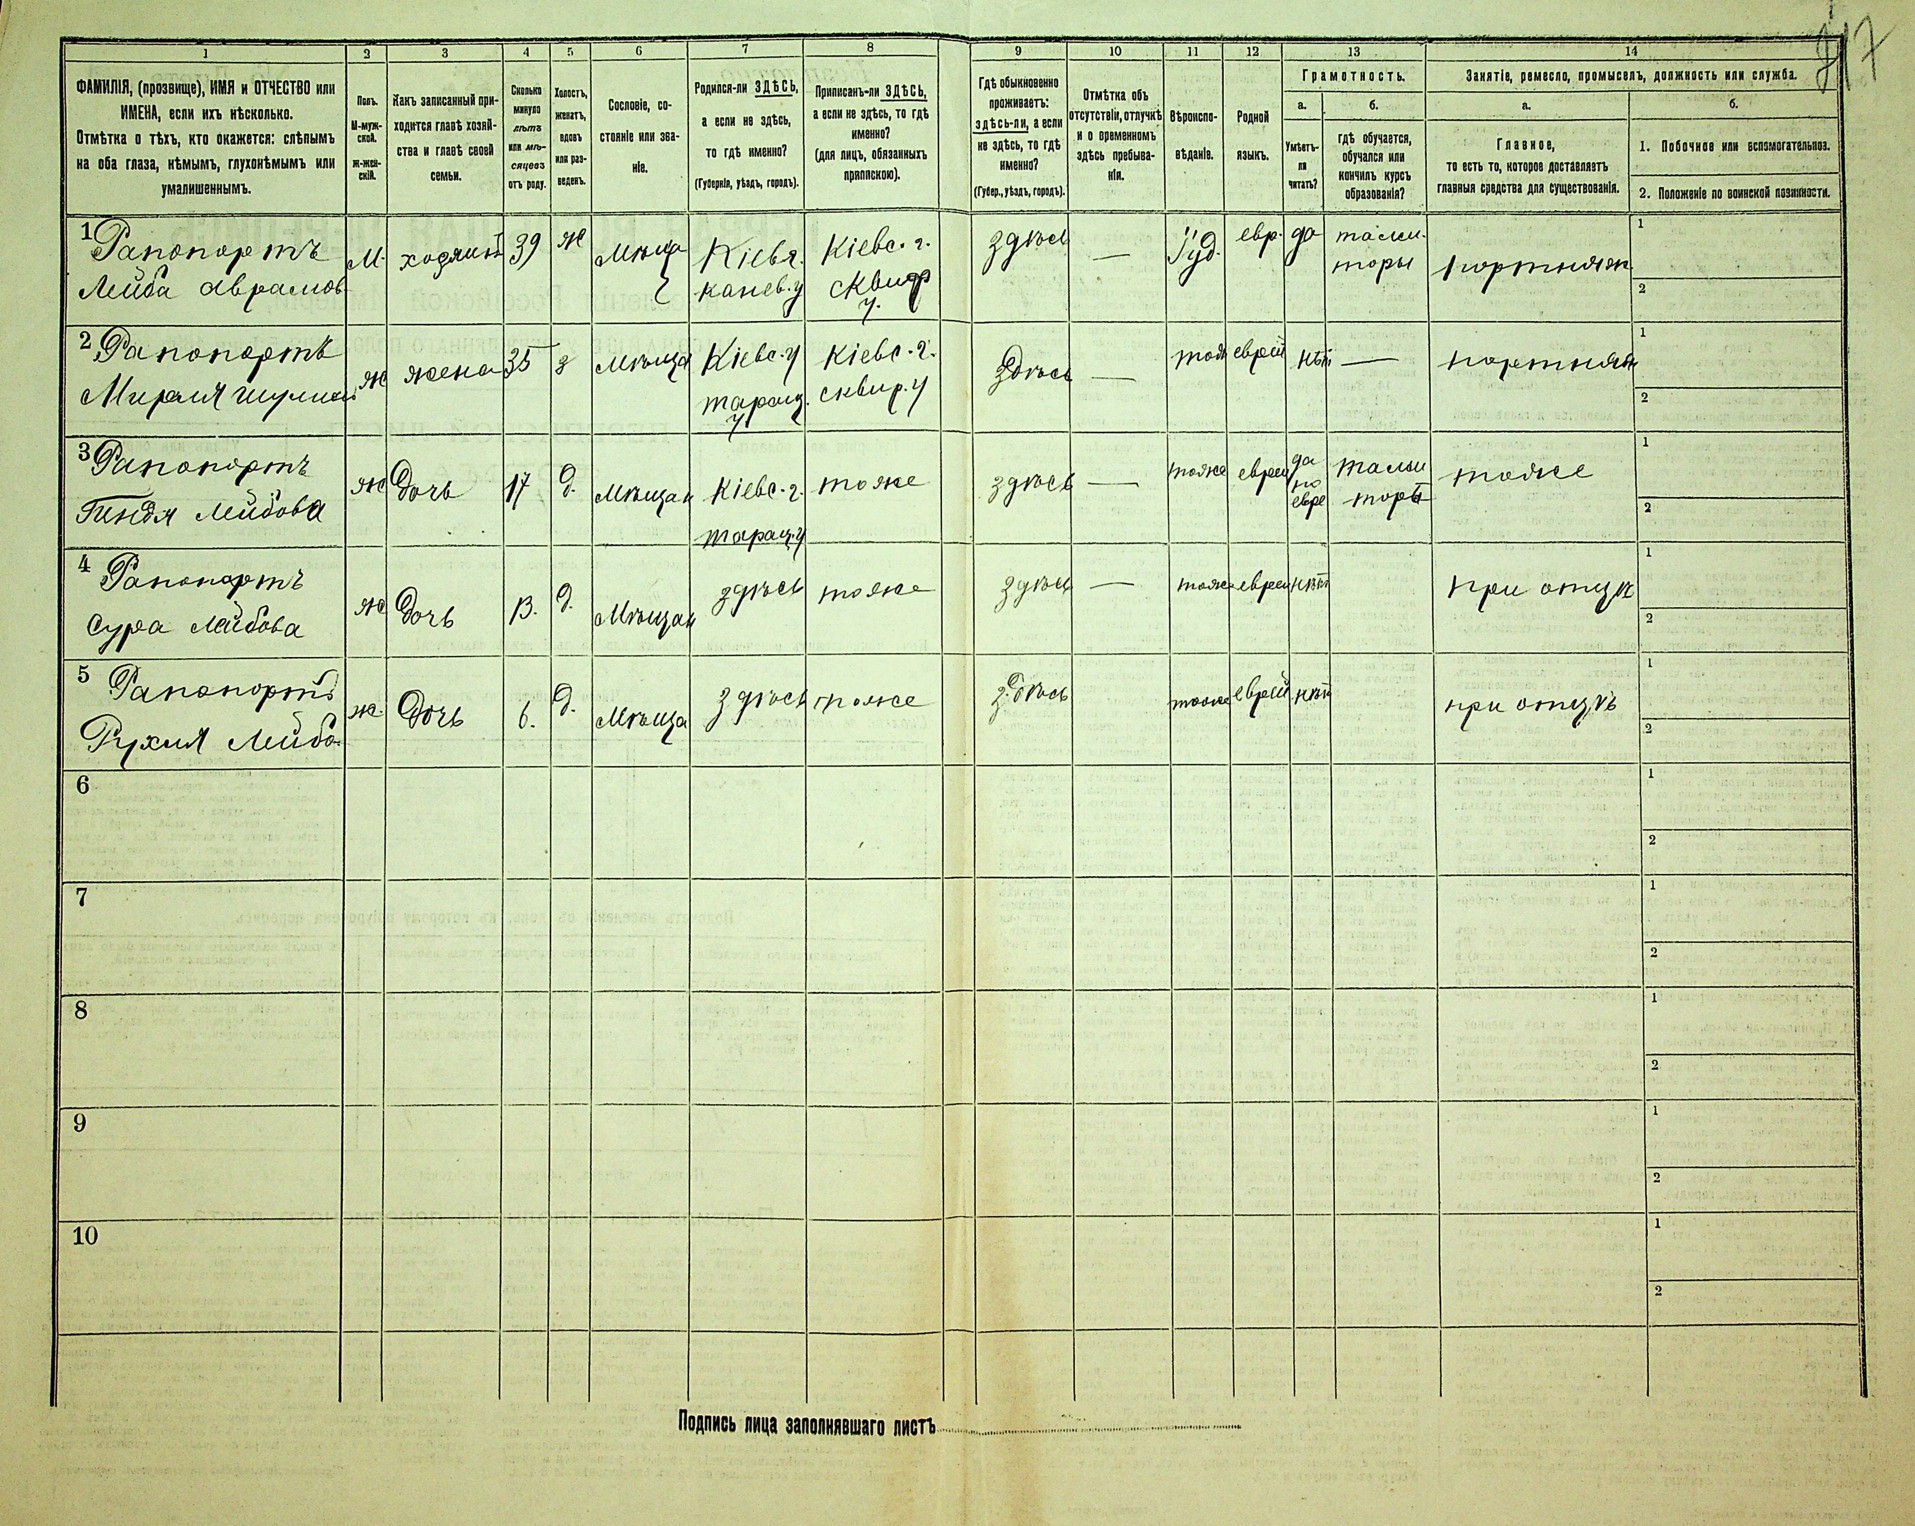 217
1
2
3
4
5
6
7
8
9
10
11
12
13
14
ФАМИЛІЯ, (прозвище), ИМЯ и ОТЧЕСТВО или
ИМЕНА, если ихъ нѣсколько.
Отмѣтка о тѣхъ, кто окажется: слѣпымъ
на оба глаза, нѣмымъ, глухонѣмымъ или
умалишеннымъ.
Полъ.
М-муж-
ской.
Ж-жен-
скій.
Какъ записанный при-
ходится главѣ хозяй-
ства и главѣ своей
семьи.
Сколько
минуло
лѣтъ
или мѣ-
сяцевъ
отъ роду.
Холостъ,
женатъ,
вдовъ
или раз-
веденъ.
Сословіе, со-
стояніе или зва-
ніе.
Родился-ли ЗДѢСЬ,
а если не здѣсь,
то гдѣ именно?
(Губернія, уѣздъ, городъ).
Приписанъ-ли ЗДѢСЬ,
а если не здѣсь, то гдѣ
именно?
(для лицъ, обязанныхъ
припискою).
Гдѣ обыкновенно
проживаетъ:
здѣсь-ли, а если
не здѣсь, то гдѣ
именно?
(Губер., уѣздъ, городъ).
Отмѣтка объ
отсутствіи, отлучкѣ
и о временномъ
здѣсь пребыва-
ніи.
Вѣроиспо-
вѣданіе.
Родной
языкъ.
Грамотность.
а.
Умѣетъ-
ли
читать?
б.
гдѣ обучается,
обучался или
кончилъ курсъ
образованія?
Занятіе, ремесло, промыселъ, должность или служба.
а.
Главное,
то есть то, которое доставляетъ
главныя средства для существованія.
б.
1. Побочное или вспомогательное.
2. Положеніе по воинской повинности.
1 Рапопортъ
Лейба Аврамов
М. хозяинъ 39 ж Мѣща
Кіевг. Канев. у
Кіевс. г. сквир у.
здѣсь — Іуд. евр. да
талм. торы
портняж
1
2
2 Рапопортъ
Мирля Шулим
ж жена 35 з Мѣща
Кіевс. у таращ. у
Кіевс. г. сквир. у
здѣсь — тоже еврей нѣт — портняж
1
2
3 Рапопортъ
Гиндя Лейбова
ж Дочь 17 д. Мѣщан
Кіевс. г. таращ. у
тоже
здѣсь — тоже еврей да по евре
талм торы
тоже
1
2
4 Рапопортъ
Сура Лейбова
ж Дочь 13. д. Мѣщан
здѣсь тоже здѣсь — тоже еврей нѣт при отцѣ
1
2
5 Рапопортъ
Рухля Лейбо
ж. Дочь 6. д. Мѣща
здѣсь тоже здѣсь тоже еврей нѣт при отцѣ
1
2
6
1
2
7
1
2
8
1
2
9
1
2
10
1
2
Подпись лица заполнявшаго листъ